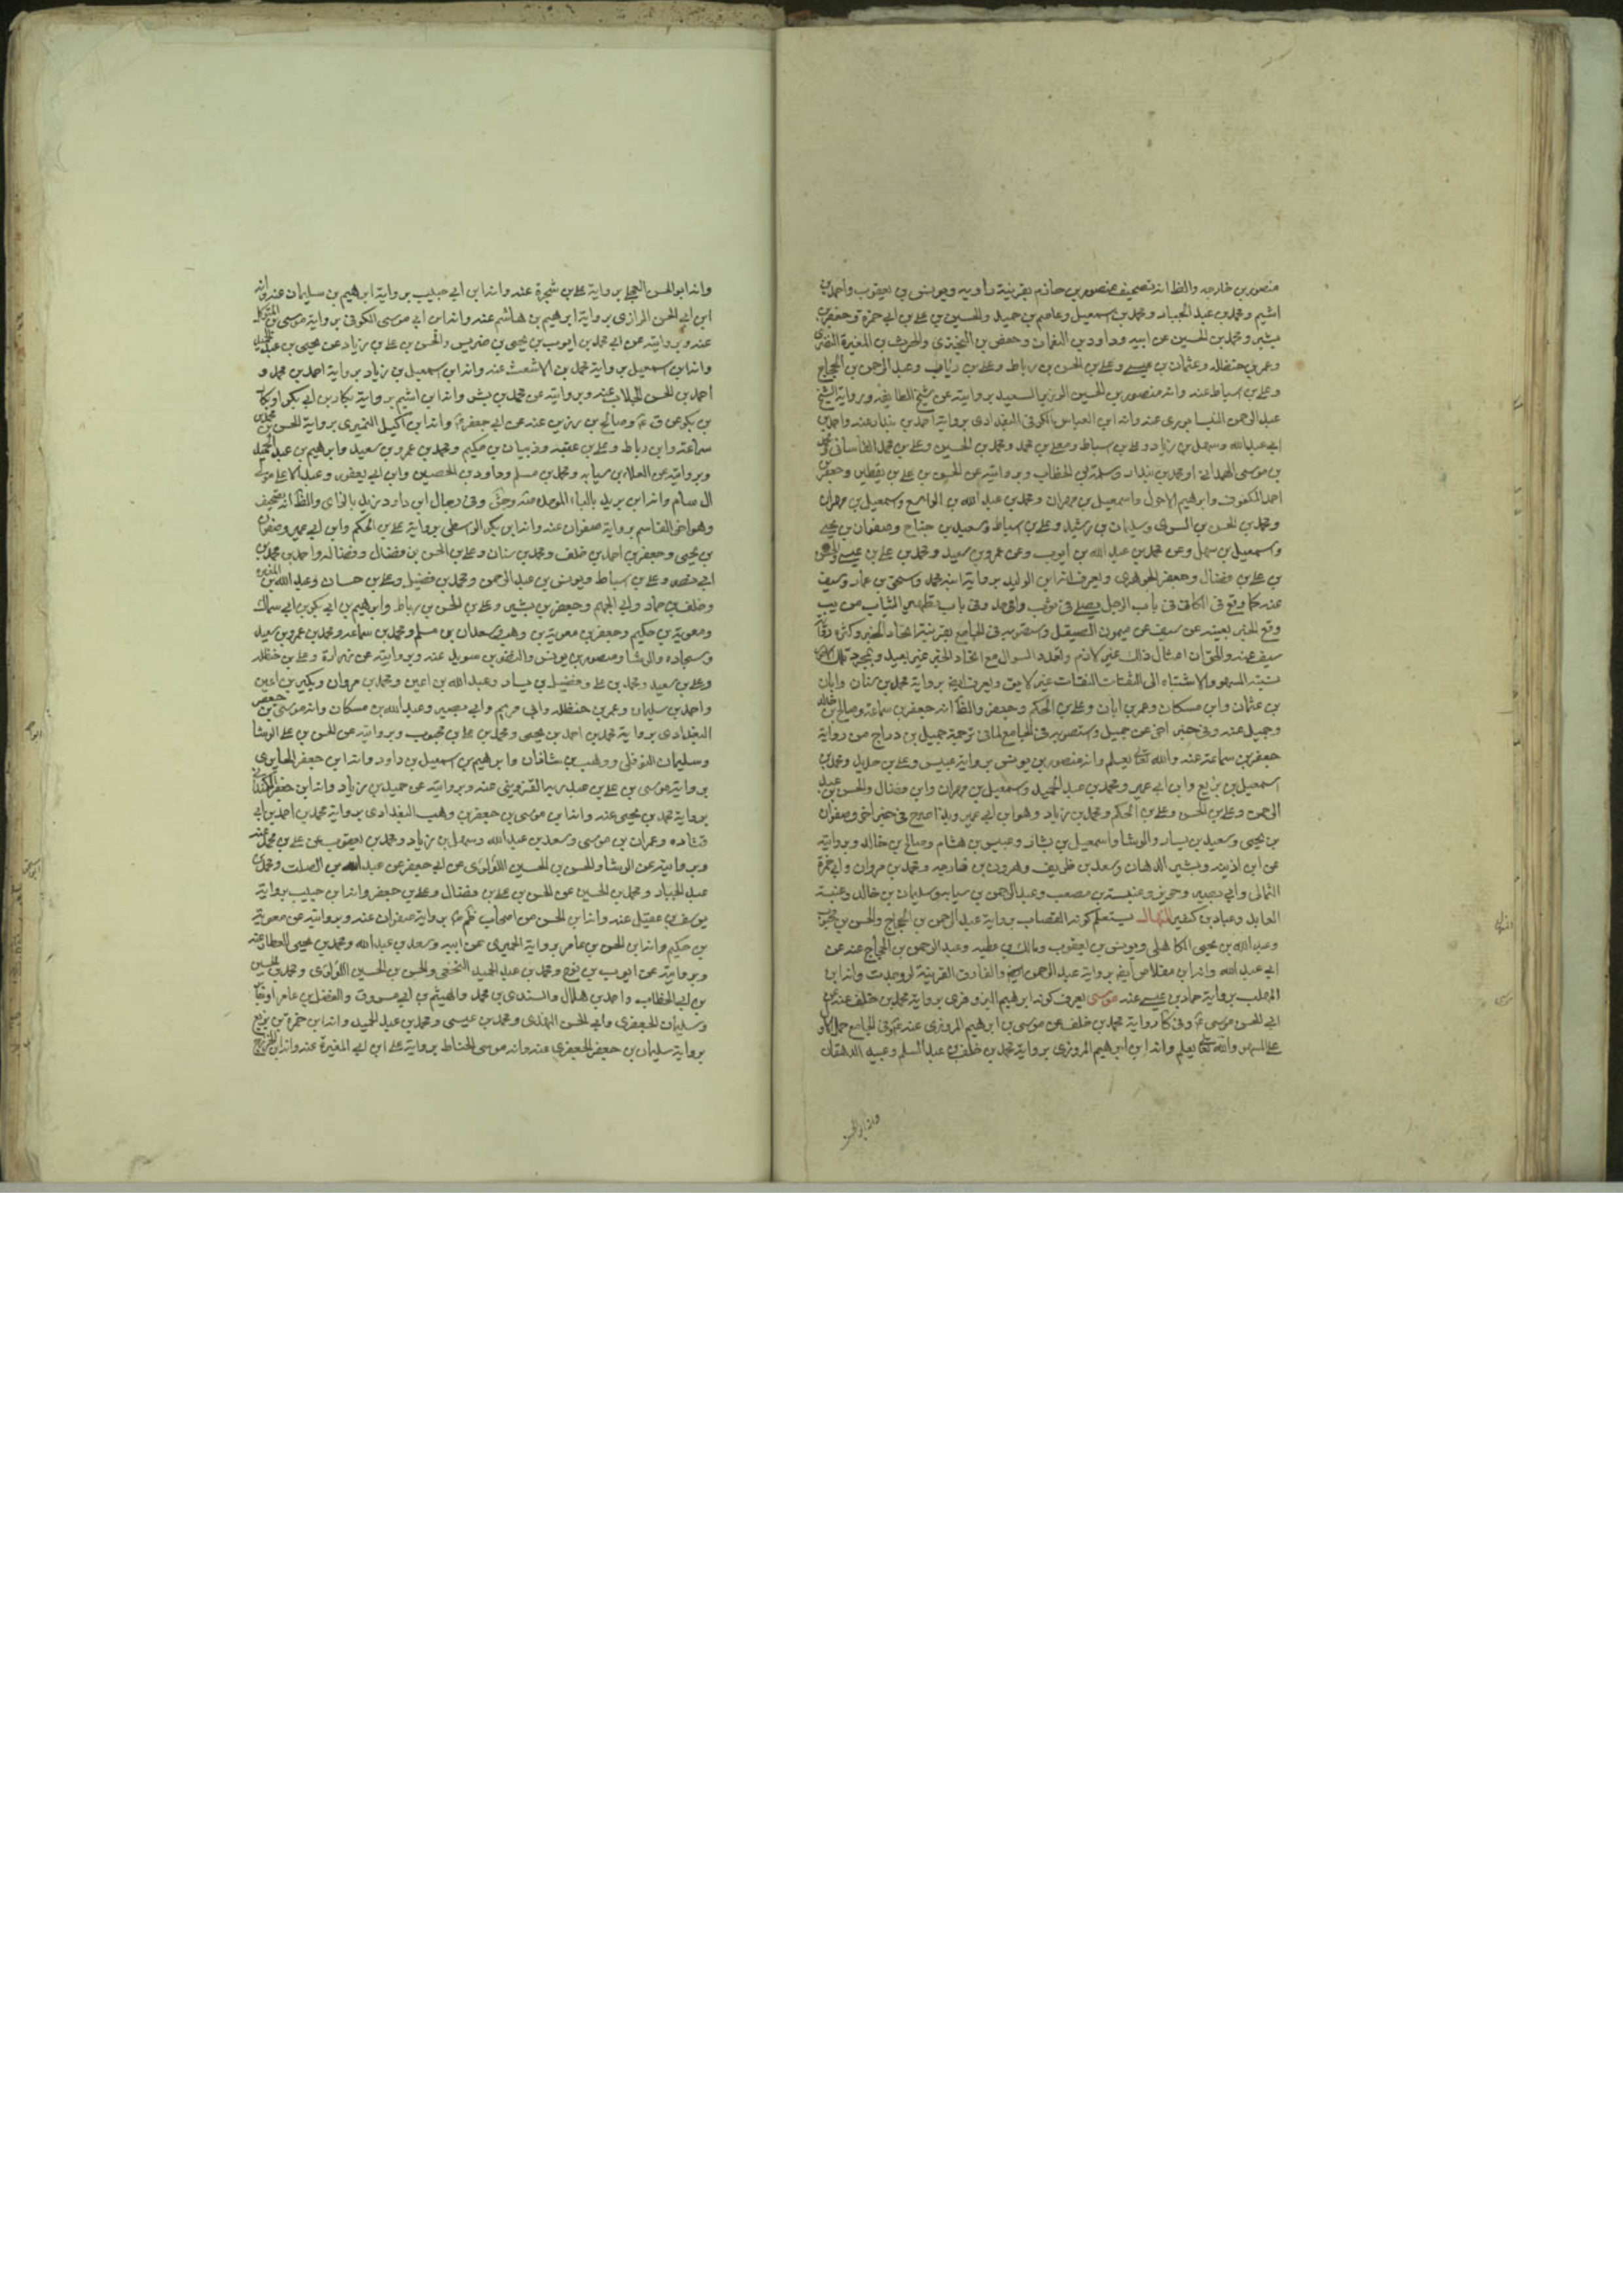 منصور بن خارجه والظ انه تصحيف منصور بن حازم بقرينة راويه ويونس بن يعقوب واحمد بن
اشيم ومحمد بن عبد الجبار ومحمد بن اسمعيل وعاصم بن حميد والحسين بن علي بن ابي حمزة وجعفر بن
بشير ومحمد بن الحسين عن ابيه وداود بن النعمان وحفص بن البختري والحرث بن المغيرة النصري
وعمر بن حنظله وعثمان بن عيسى وعلي بن الحسن بن رباط وعلي بن رئاب وعبد الرحمن بن الحجاج
وعلي بن اسباط عنه وانه منصور بن الحسين الوزير السعيد بروايته عن شيخ الطايفه وبرواية الشيخ
عبد الرحمن النيسابوري عنه وانه ابن العباس الكوفي البغدادي برواية احمد بن بندار عنه واحمد بن
ابي عبد الله وسهل بن زياد وعلي بن اسباط ومعلي بن محمد ومحمد بن الحسين وعلي بن محمد القاساني
بن موسى الهمداني او محمد بن بندار وسلمة بن الخطاب وبروايته عن الحسن بن علي بن يقطين وجعفر بن
احمد المكفوف وابرهيم الاحول واسمعيل بن مهران ومحمد بن عبد الله بن الواسع واسمعيل بن مهران
ومحمد بن الحسن بن السري وسليمان بن رشيد وعلي بن اسباط وسعيد بن جناح وصفوان بن يحيى
واسمعيل بن سهل وعن محمد بن عبد الله بن ايوب وعن عمرو بن سعيد ومحمد بن علي بن عيسى
بن علي بن فضال وجعفر الجوهري ويعرف انه ابن الوليد برواية ابنه محمد واسحق بن عمار وسيف
عنه كما وقع في الكافي في باب الرجل يصلي في ثوب واحد وفي باب تطهير الثياب من يب
وقع الخبر بعينه عن سيف عن ميمون الصيقل واستصوبه في الجامع بقرينة اتحاد الخبر وكثرة رواية
سيف عنه والحق ان امثال ذلك غير لازم وتعدد السوال مع اتحاد الخبر غير بعيد وبمجرد ذلك
نسبة السهو والاشتباه الى الثقات الثقات غير لايق ويعرف ايضا برواية محمد بن سنان وابان
بن عثمان وابن مسكان وعمر بن ابان وعلي بن الحكم وجعفر والظ انه جعفر بن سماعة وصالح بن خالد
وجميل عنه وفي خبر اخر عن جميل واستصوبه في الجامع لما في ترجمة جميل بن دراج من رواية
جعفر بن سماعة عنه والله تعالى يعلم وانه منصور بن يونس برواية عبيس وعلي بن حديد ومحمد بن
اسمعيل بن بزيع وابن ابي عمير ومحمد بن عبد الحميد واسمعيل بن مهران وابن فضال والحسن بن عبد
الرحمن وعلي بن الحسن وعلي بن الحكم ومحمد بن زياد وهو ابن ابي عمير وبه اصرح في خبر اخر وصفوان
بن يحيى وسعيد بن يسار والوشا واسمعيل بن بشار وعبيس بن هشام وصالح بن خالد وبروايته
عن ابن اذينه وبشير الدهان وسعد بن ظريف وهرون بن خارجه ومحمد بن مروان وابي حمزة
الثمالي وابي بصير وحريز وعنبسة بن مصعب وعبد الرحمن بن سيابه وسليمان بن خالد وعنبسة
العابد وعباد بن كثير المنهال يستعلم كونه القصاب برواية عبد الرحمن بن الحجاج والحسن بن محبوب
وعبد الله بن يحيى الكاهلي ويونس بن يعقوب ومالك بن عطيه وعبد الرحمن بن الحجاج عنه عن
ابي عبد الله وانه ابن مقلاص ايضا برواية عبد الرحمن ايضا والفارق القرينة لو وجدت وانه ابن
المهلب برواية حماد بن عيسى عنه موسى يعرف كونه ابرهيم البزوفري برواية محمد بن خلف عنه عن
ابي الحسن موسى ع وفي كا رواية محمد بن خلف عن موسى بن ابرهيم المروزي عنه ع وفي الجامع حمل
على السهو والله تعالى يعلم وانه ابن ابرهيم المروزي برواية محمد بن خلف بن عبد السلم وعبيد الدهقان
وانه ابو الحسن
وانه ابو الحسن العجلي برواية علي بن شجرة عنه وانه ابن ابي حبيب برواية ابرهيم بن سليمان عنه وانه
ابن ابي الحسن الرازي برواية ابرهيم بن هاشم عنه وانه ابن ابي موسى الكوفي برواية موسى بن المتوكل
عنه وبروايته عن ابي محمد بن ايوب بن يحيى بن ضريس والحسن بن علي بن زياد عن يحيى بن عبد الحميد
وانه ابن اسمعيل برواية محمد بن الاشعث عنه وانه ابن اسمعيل بن زياد برواية احمد بن محمد و
احمد بن الحسن الجلاب عنه وبروايته عن محمد بن بشر وانه ابن اشيم برواية بكار بن ابي بكر او بكار
بن بكر عن ق ع وصالح بن رزين عنه عن ابي جعفر ع وانه ابن اكيل النميري برواية الحسن بن محمد بن
سماعة وابن رباط وعلي بن عقبه وذبيان بن حكيم ومحمد بن عمرو بن سعيد وابرهيم بن عبد الحميد
وبروايته عن العلاء بن سيابه ومحمد بن مسلم وداود بن الحصين وابن ابي يعفور وعبد الاعلى مولى
ال سام وانه ابن بريد بالباء الموحدة صه وجش وفي رجال ابن داود يزيد بالزاي والظ انه تصحيف
وهو اخو القاسم برواية صفوان عنه وانه ابن بكر الواسطي برواية علي بن الحكم وابن ابي عمير وصفوان
بن يحيى وجعفر بن احمد بن خلف ومحمد بن سنان وعلي بن الحسن بن فضال وفضاله واحمد بن محمد بن
ابي نصر وعلي بن اسباط ويونس بن عبد الرحمن ومحمد بن فضيل وعلي بن حسان وعبد الله بن المغيره
وخلف بن حماد وابي الجهم وجعفر بن بشير وعلي بن الحسن بن رباط وابرهيم بن ابي بكر بن ابي سماك
ومعوية بن حكيم وجعفر بن معوية بن وهب وسعدان بن مسلم ومحمد بن سماعه ومحمد بن عمرو بن سعيد
وسجاده والوشا ومنصور بن يونس والنضر بن سويد عنه وبروايته عن زرارة وعلي بن حنظله
وعلي بن سعيد ومحمد بن علي وفضيل بن يسار وعبد الله بن اعين ومحمد بن مروان وبكير بن اعين
واحمد بن سليمان وعمر بن حنظله وابي مريم وابي بصير وعبد الله بن مسكان وانه موسى بن جعفر
البغدادي برواية محمد بن احمد بن يحيى ومحمد بن علي بن محبوب وبروايته عن الحسن بن علي الوشا
وسليمان النوفلي ووهب بن شاذان وابرهيم بن اسمعيل بن داود وانه ابن جعفر الحايري
برواية موسى بن علي بن عبد ربه القزويني عنه وبروايته عن حميد بن زياد وانه ابن جعفر الكمنداني
برواية محمد بن يحيى عنه وانه ابن موسى بن جعفر بن وهب البغدادي برواية محمد بن احمد بن ابي
قتاده وعمران بن موسى وسعد بن عبد الله وسهل بن زياد ومحمد بن يعقوب عن علي بن محمد عنه
وبروايته عن الوشا والحسن بن الحسين اللؤلؤي عن ابي جعفر عن عبد الله بن الصلت ومحمد بن
عبد الجبار ومحمد بن الحسين عن الحسن بن علي بن فضال وعلي بن جعفر وانه ابن حبيب برواية
يوسف بن عقيل عنه وانه ابن الحسن من اصحاب ظم ع برواية صفوان عنه وبروايته عن معوية
بن حكيم وانه ابن الحسن بن عامر برواية الحميري عن ابيه وسعد بن عبد الله ومحمد بن يحيى العطار عنه
وبروايته عن ايوب بن نوح ومحمد بن عبد الحميد النخعي والحسن بن الحسين اللؤلؤي ومحمد بن الحسين
بن ابي الخطاب واحمد بن هلال والسندي بن محمد والهيثم بن ابي مسروق والفضل بن عامر
وسليمان الجعفري وابي الحسن النهدي ومحمد بن عيسى ومحمد بن عبد الحميد وانه ابن حمزة بن بزيع
برواية سليمان بن جعفر الجعفري عنه وانه موسى الحناط برواية علي ابن ابي المغيرة عنه وانه ابن